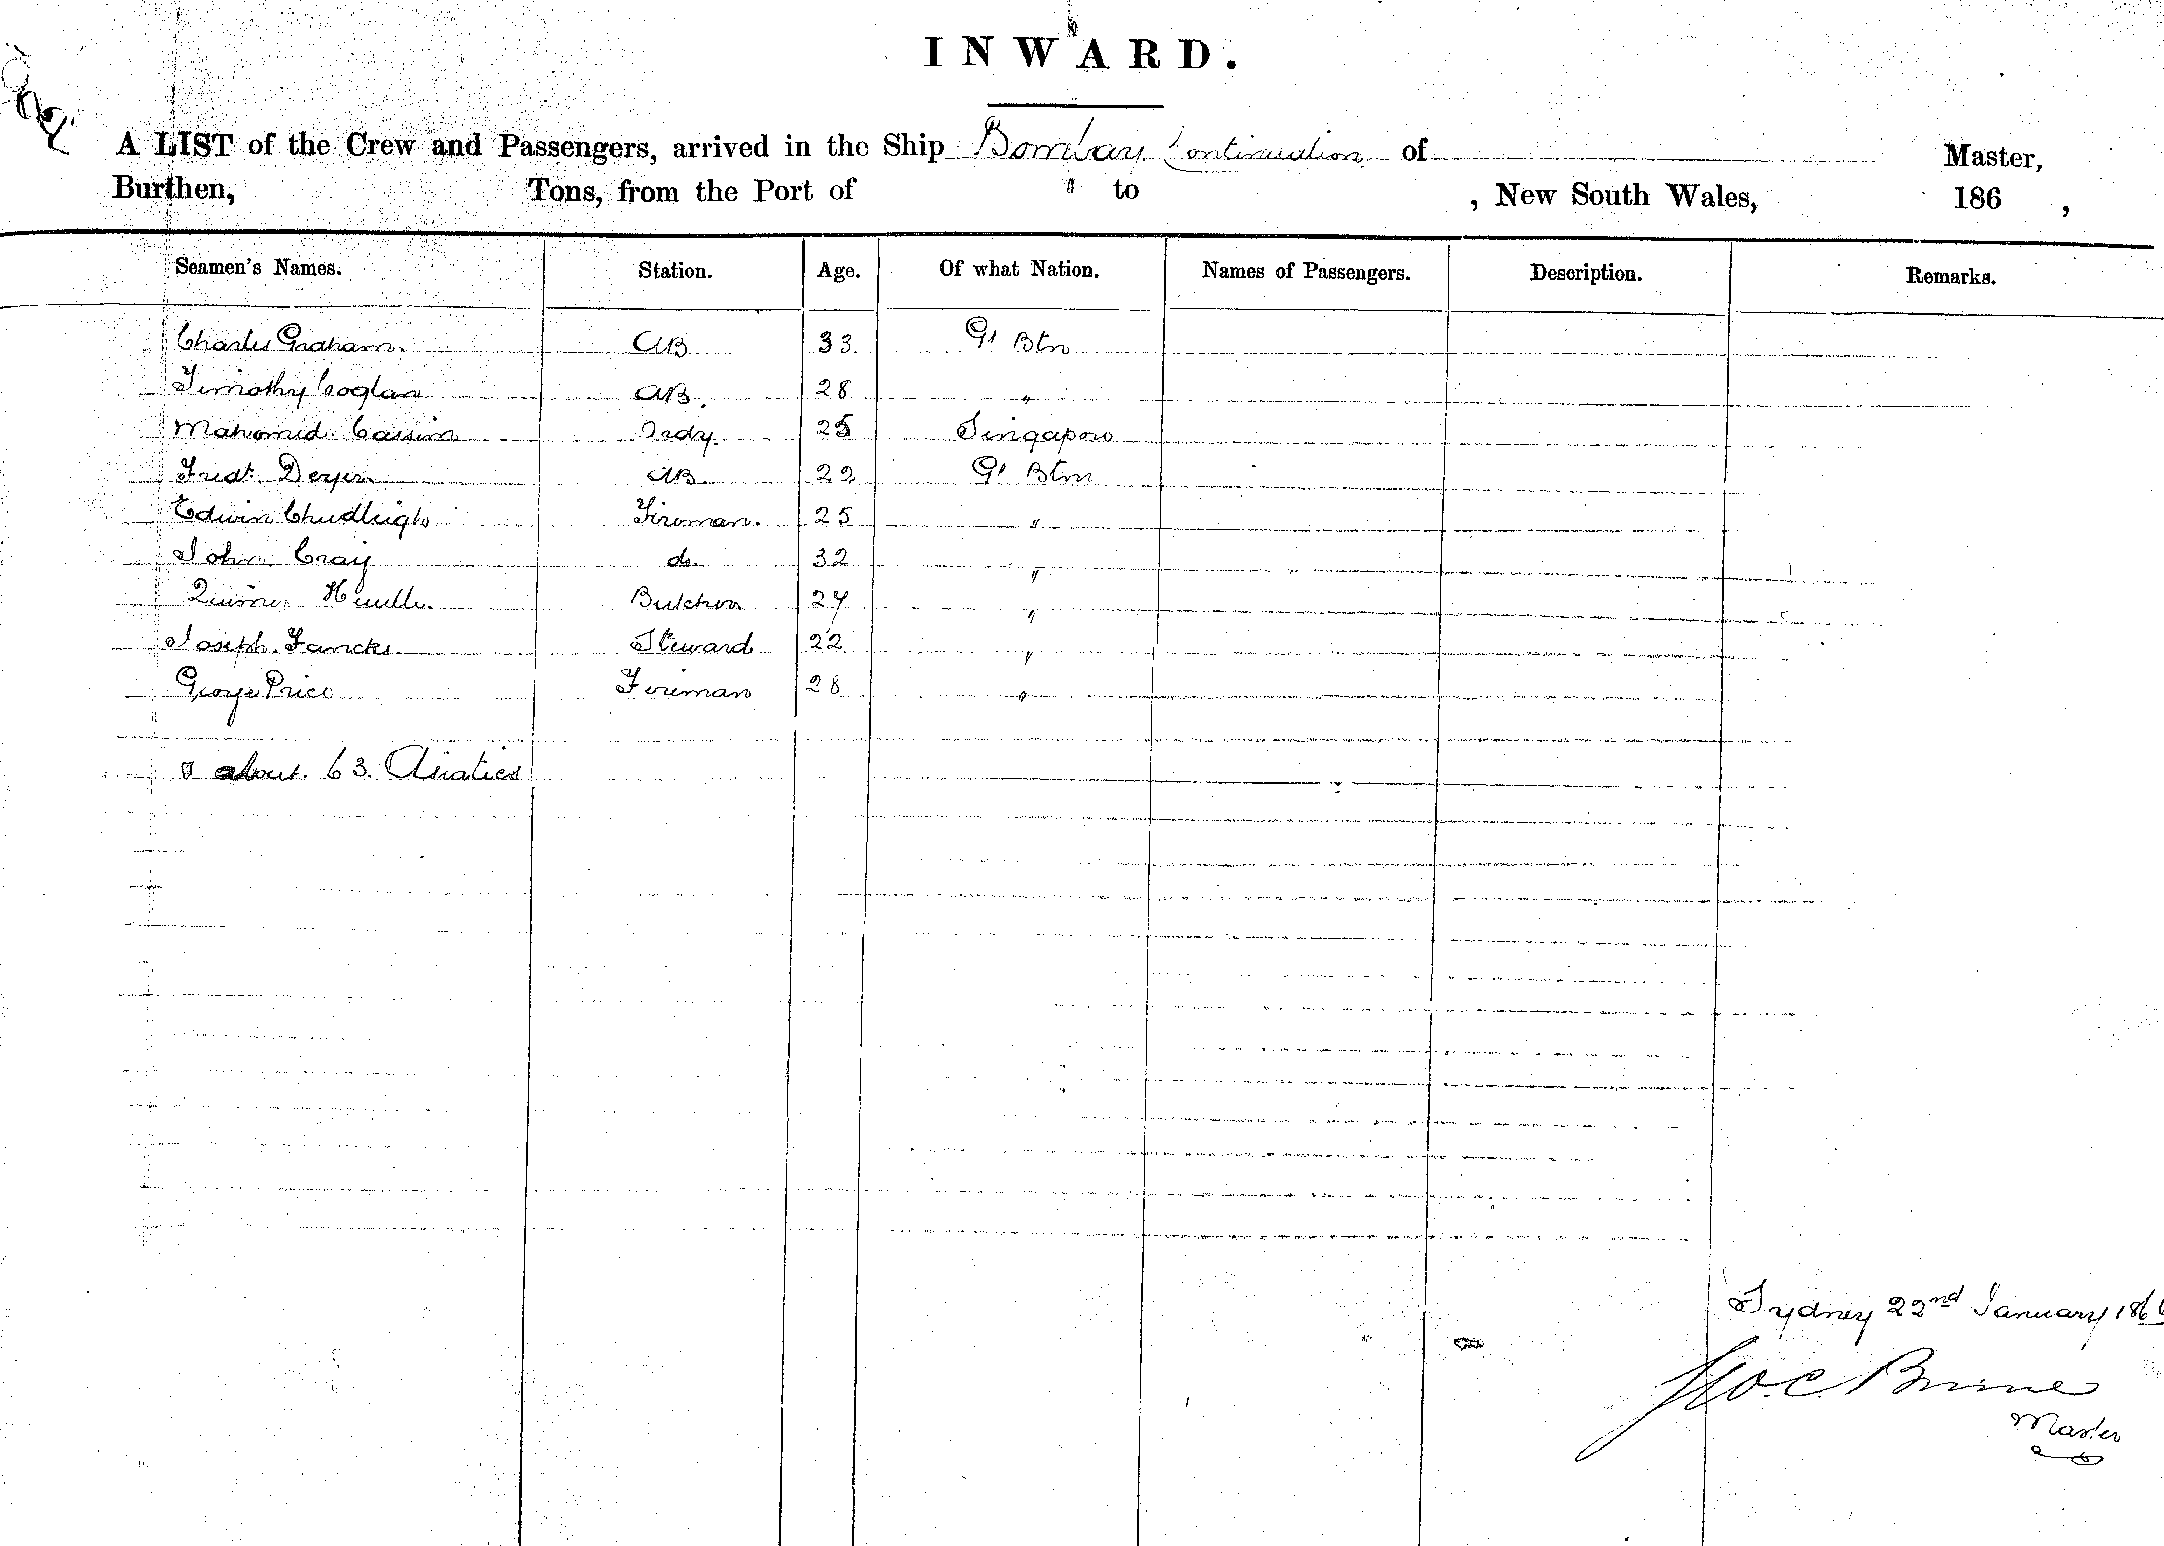 INWARD.
A LIST of the Crew and Passengers, arrived in the Ship Bombay Continuation of Master,
Burthen, Tons, from the Port of " to , New South Wales, 186 ,
Seamen's Names. Station. Age. Of what Nation. Names of Passengers. Description. Remarks.
Charles Graham. AB 33 Gt Btn
Timothy Coglan AB. 28 "
Mahomed Cassim Ordy 25 Singapore
Fredk Deyer AB 22 Gt Btn
Edwin Chudleigh Fireman. 25 "
John Cray do 32 "
Butcher "
Joseph Steward 22 "
George Price Fireman 28 "
& about 63. Asiatics
Sydney 22nd January 186
Geo. C. Brine
Master